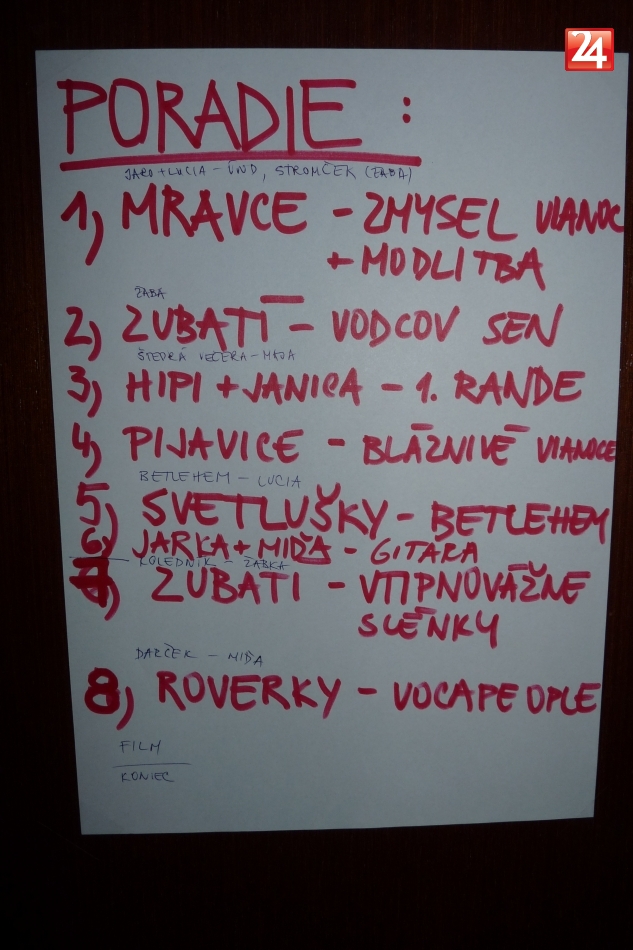 24
PORADIE :
JARO+LUCIA - ÚVOD, STROMČEK (ŽABA)
1, MRAVCE - ZMYSEL VIANOC
+ MODLITBA
ŽABA
2, ZUBATÍ - VODCOV SEN
ŠTEDRÁ VEČERA - MIŠA
3, HIPI + JANICA - 1. RANDE
4, PIJAVICE - BLÁZNIVÉ VIANOCE
BETLEHEM - LUCIA
5, SVETLUŠKY - BETLEHEM
6, JARKA + MIŠA - GITARA
KOLEDNÍK - ŽABKA
7, ZUBATI - VTIPNOVÁŽNE
SCÉNKY
DARČEK - MIŠA
8, ROVERKY - VOCAPEOPLE
FILM
KONIEC